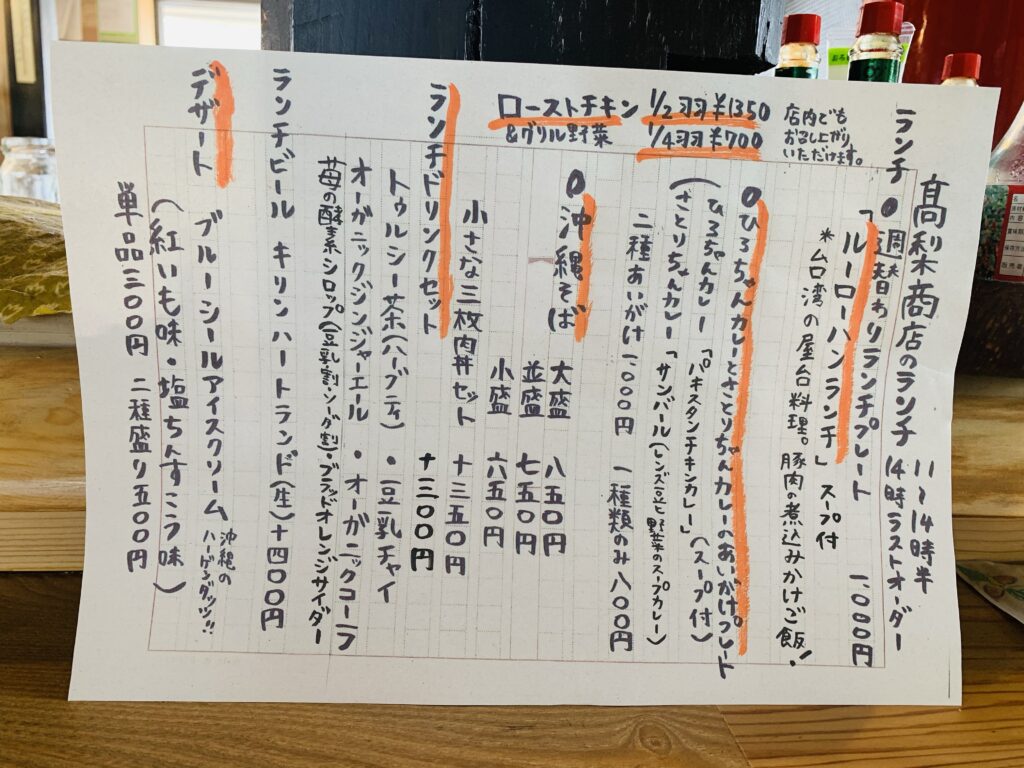 髙梨商店のランチ 11〜14時半
14時ラストオーダー
ランチ
○週替わりランチプレート
「ルーローハンランチ」スープ付 一、〇〇〇円
*台湾の屋台料理。豚肉の煮込みかけご飯!
○ひろちゃんカレーとさとりちゃんカレーのあいがけプレート
(ひろちゃんカレー「パキスタンチキンカレー」(スープ付)
さとりちゃんカレー「サンバール(レンズ豆と野菜のスープカレー)
二種あいがけ 一、〇〇〇円 一種類のみ 八〇〇円
○沖縄そば 大盛 八五〇円
並盛 七五〇円
小盛 六五〇円
小さな三枚肉丼セット +三五〇円
ランチドリンクセット +三〇〇円
トゥルシー茶(ハーブティ) ・豆乳チャイ
オーガニックジンジャーエール ・オーガニックコーラ
苺の酵素シロップ(豆乳割・ソーダ割)・ブラッドオレンジサイダー
ランチビール キリンハートランド(生)+四〇〇円
デザート
ブルーシールアイスクリーム 沖縄のハーゲンダッツ!!
(紅いも味・塩ちんすこう味)
単品三〇〇円 二種盛り五〇〇円
ローストチキン 1/2羽¥1350
&グリル野菜 1/4羽¥700
店内でも
お召し上がり
いただけます。